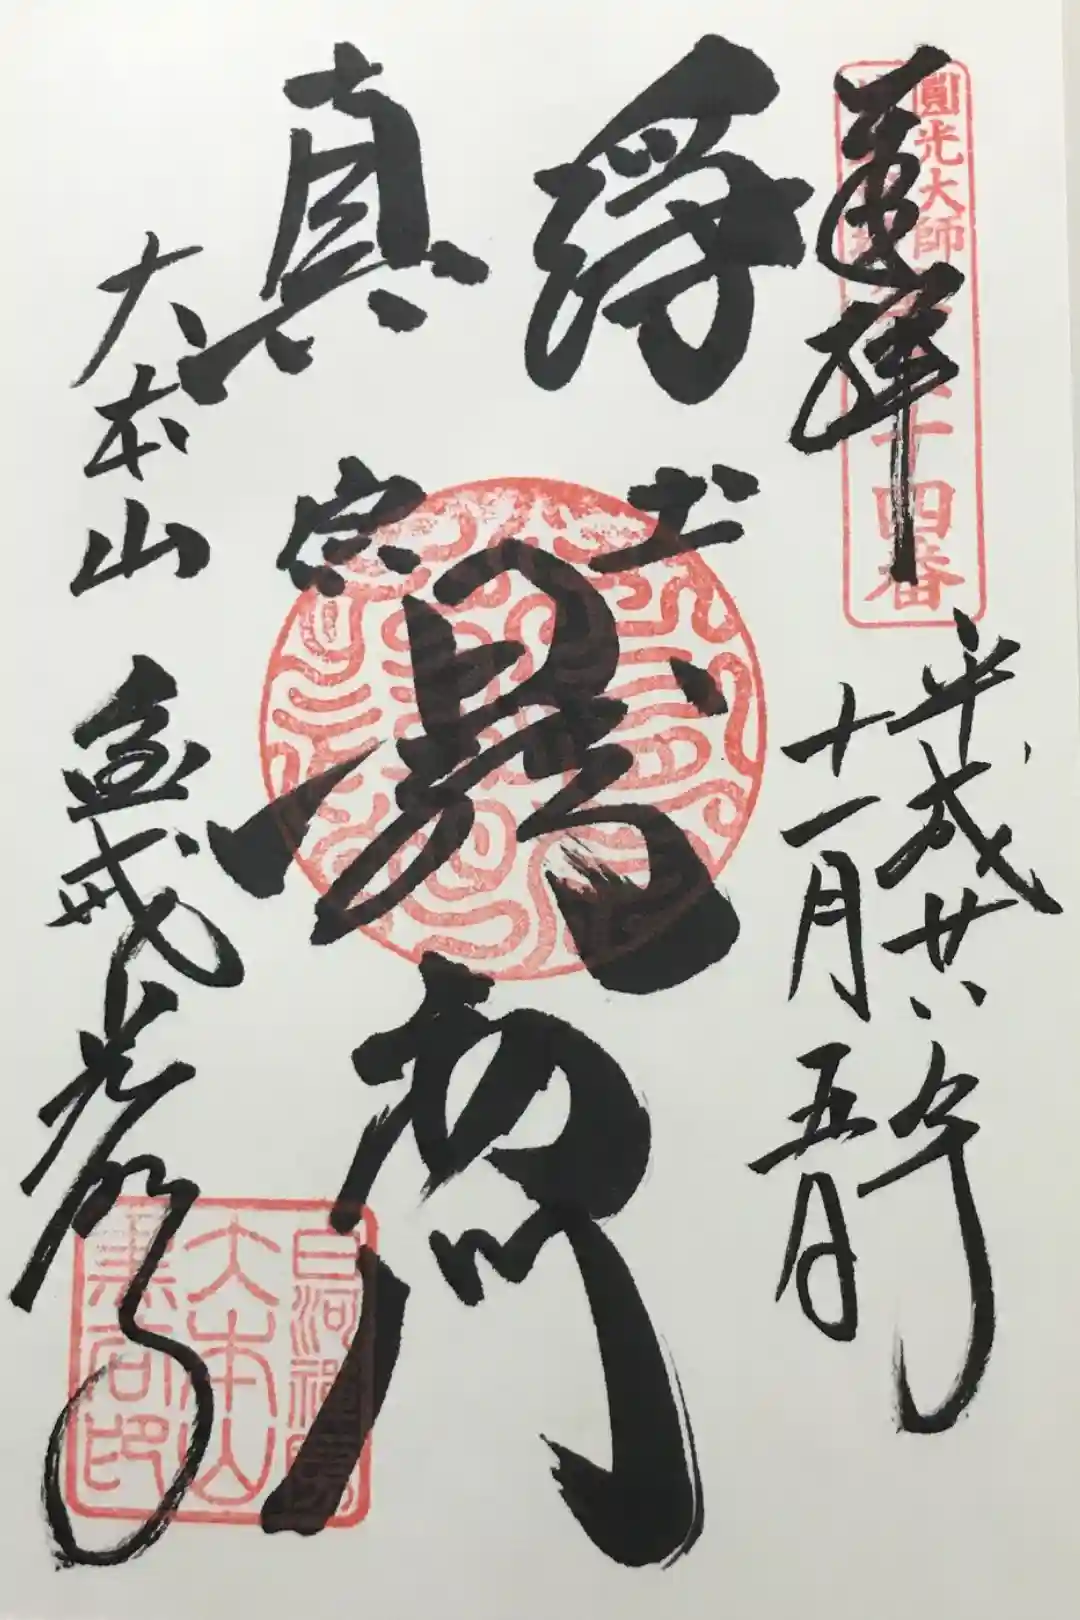 圓光大師
十四番
奉拝
平成廿八年
十一月五日
浄土
真宗
最初門
大本山 金戒光明寺
白河禅房
大本山
黒谷印